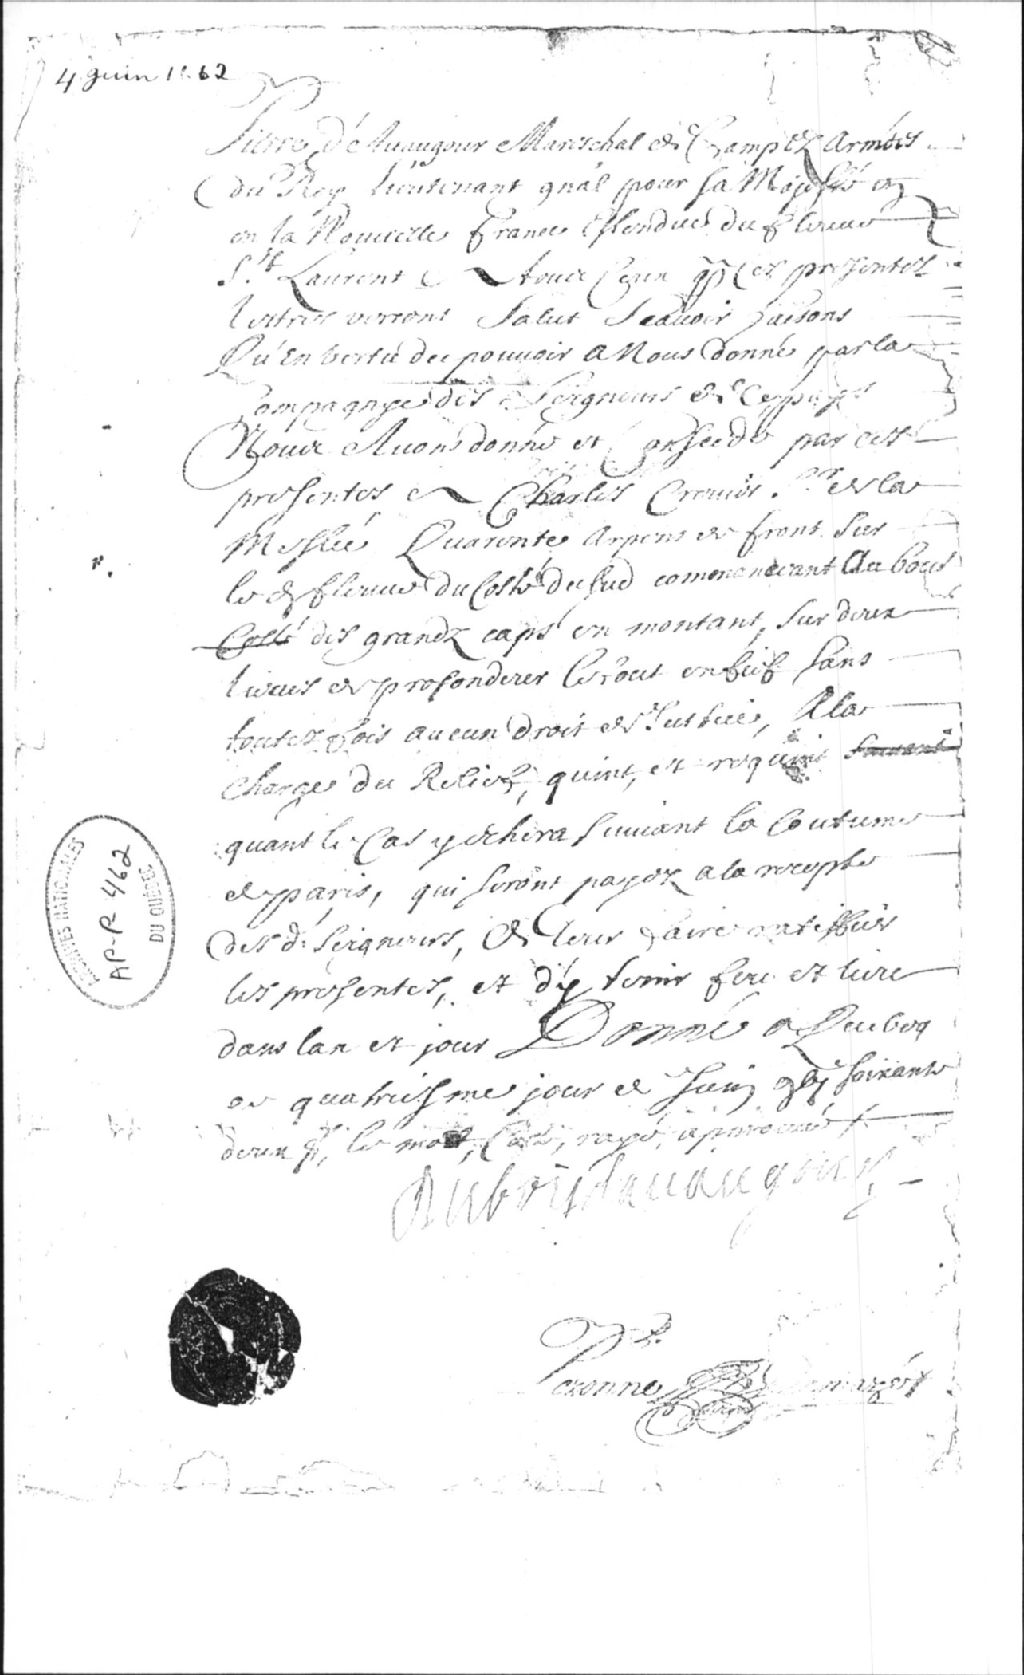 4 Juin 1662
Pierre d'Auaugour Mareschal de Camp ez Armées
du Roy lieutenant gnāl pour sa Majesté
en la Nouuelle France Estendue du fleuue
St. Laurent A touz Ceux qui ces presentes
lettres verront Salut Scauoir faisons
Qu'En vertu de pouuoir a Nous donné par la
Compagnye des Seigneurs de ce pays
Nous Auons donné et Consedé par ces
presentes a Charles Cr Sr. de la
Meslée Quarente arpens de front sur
le d fleuue du Costé du sud commencant Au bout
Costé des grandz caps en montant, sur deux
lieues de profondeur le tout en fief sans
toutes fois aucun droit de Justice, A la
charge du Relief, quint, et requint suiuant
quant le Cas y echera suiuant la Coutume
de paris, qui seront payez a la recepte
des d. Seigneurs, de leur faire ratiffier
les presentes, et d'y tenir feu et lieu
dans lan et jour Donné a Quebeq
ce quatriesme jour de Juin gbj soixante
deux ./., le mot, Costé, rayé, aprouué ./.
Duboisdauaugour,
Peronne Demazé
ARCHIVES NATIONALES
AP-P 462
DU QUEBEC